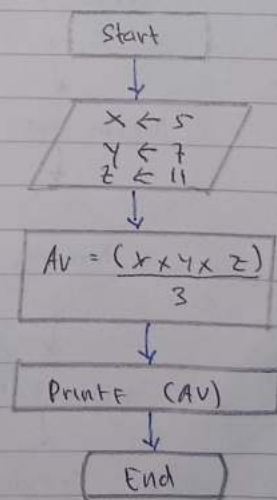 Start
X ← 5
Y ← 7
Z ← 11
AV = (X x Y x Z)
3
PrintF (AV)
End